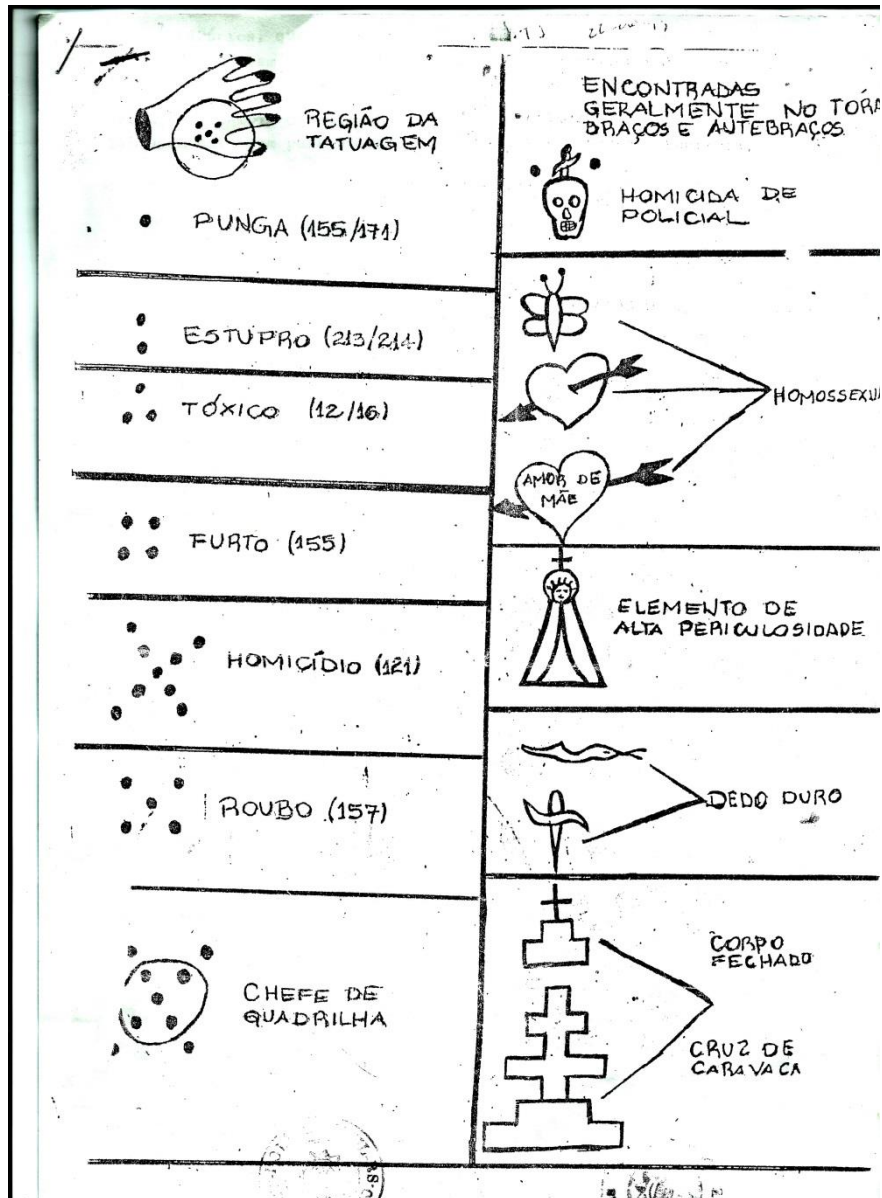 REGIÃO DA
TATUAGEM
PUNGA (155/171)
ESTUPRO (213/214)
TÓXICO (12/16)
FURTO (155)
HOMICÍDIO (121)
ROUBO (157)
CHEFE DE
QUADRILHA
ENCONTRADAS
GERALMENTE NO TÓRA
BRAÇOS E ANTEBRAÇOS
HOMICIDA DE
POLICIAL
HOMOSSEXU
AMOR DE
MÃE
ELEMENTO DE
ALTA PERICULOSIDADE
DEDO DURO
CORPO
FECHADO
CRUZ DE
CARAVACA